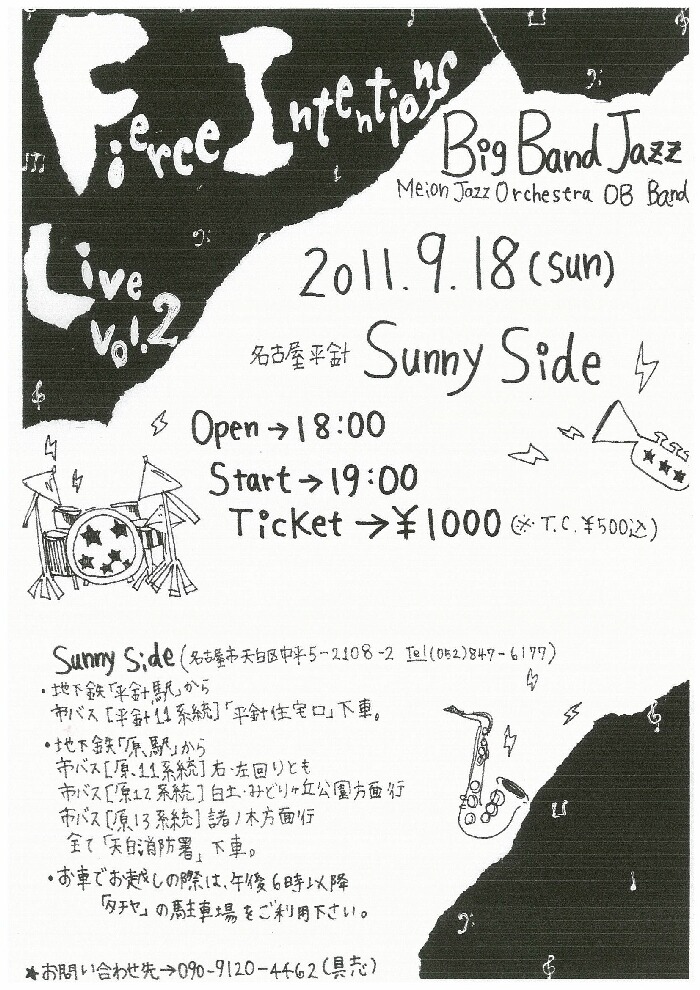 Fierce Intentions
Big Band Jazz
Meion Jazz Orchestra OB Band
Live
vol.2
2011.9.18(sun)
名古屋平針 Sunny Side
Open→18:00
Start→19:00
Ticket→¥1000(※T.C.¥500込)
Sunny Side(名古屋市天白区中平5-2108-2 Tel(052)847-6177)
・地下鉄「平針駅」から
市バス[平針11系統]「平針住宅口」下車。
・地下鉄「原駅」から
市バス[原11系統]右・左回りとも
市バス[原12系統]白土・みどりヶ丘公園方面行
市バス[原13系統]諸ノ木方面行
全て「天白消防署」下車。
・お車でお越しの際は、午後6時以降
「タチヤ」の駐車場をご利用下さい。
★お問い合わせ先→090-9120-4462(具志)